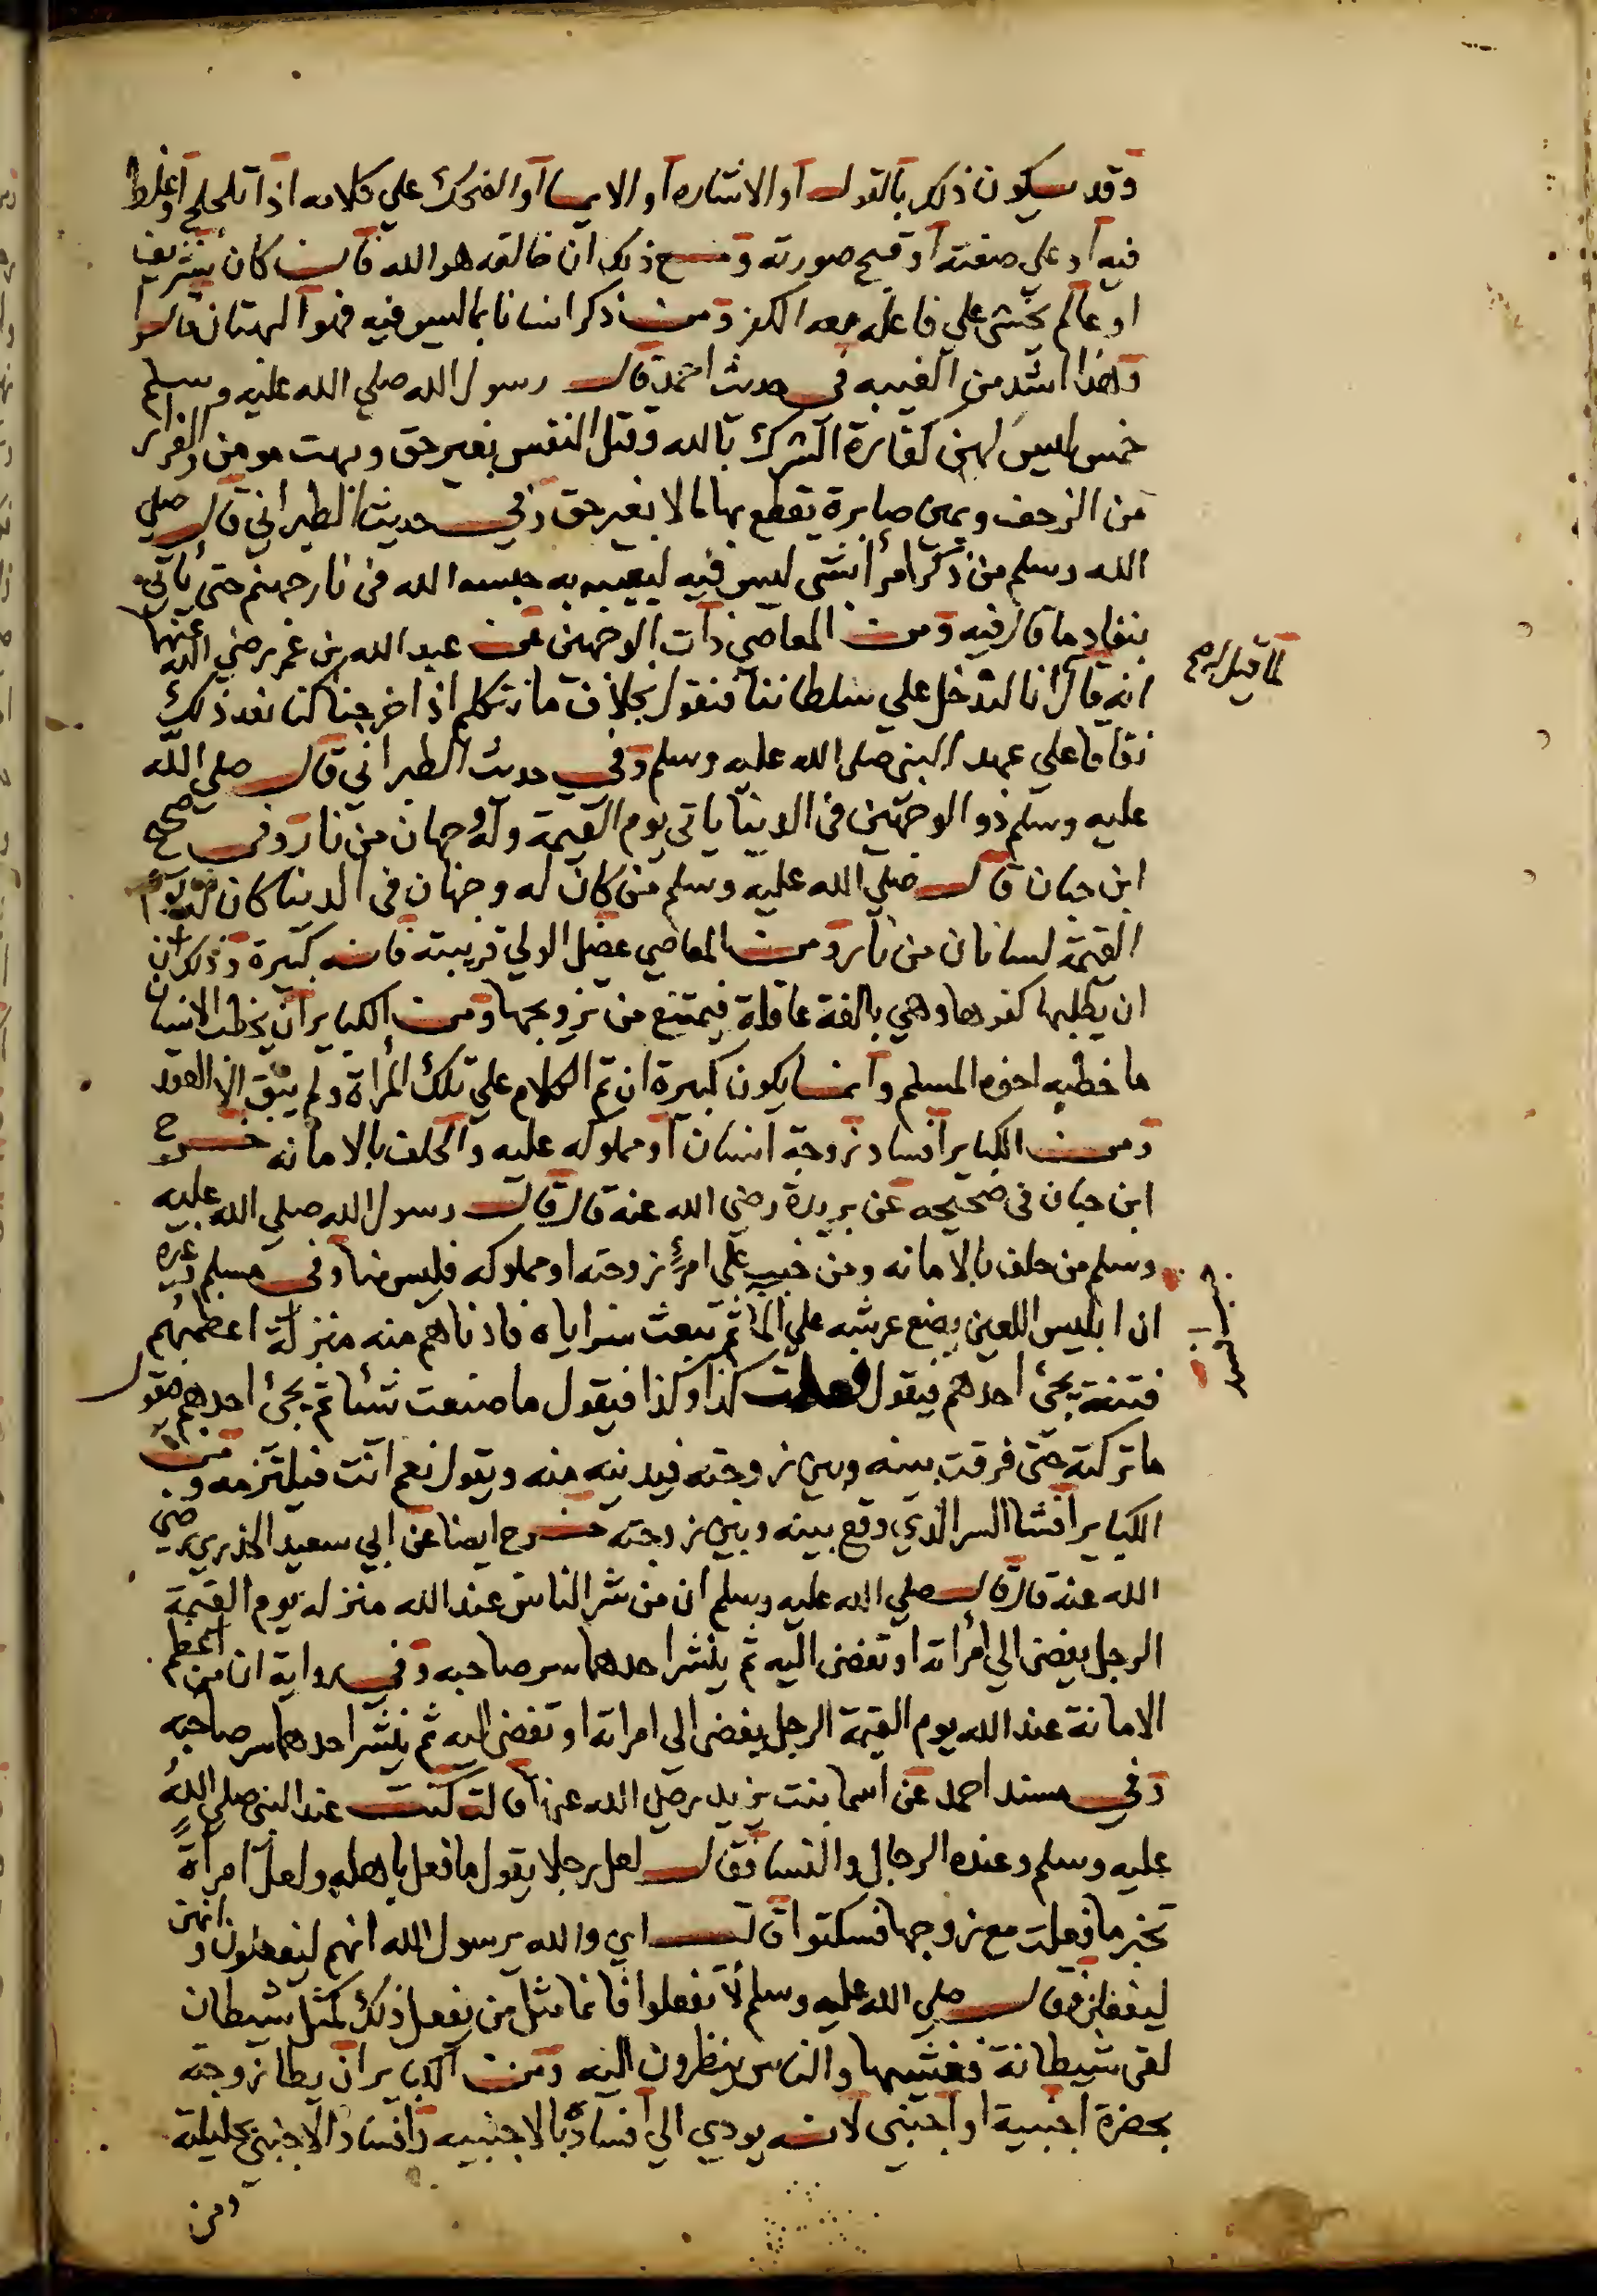 وقد يكون ذلك بالقول او الاشاره او الايما او الضحك علي كلامه اذا تلجلج او غلط
فيه او علي صفته او قبح صورته وقبح ذلك ان خالقه هو الله فان كان بشريف
او عالم يخشى علي فاعله معه الكفر ومن ذكر انسانا بما ليس فيه فهو البهتان قالوا
وهذا اشد من الغيبه في حديث احمد قال رسول الله صلي الله عليه وسلم
خمس ليس لهن كفارة الشرك بالله وقتل النفس بغير حق وبهت مومن والفرار
من الزحف ويمين صابرة يقطع بها مالا بغير حق وفي حديث الطبراني قال صلي
الله وسلم من ذكر امرأ بشى ليس فيه ليعيبه به حبسه الله في نار جهنم حتى يأتي
بنفاد ما قال فيه ومن المعاصي ذات الوجهين عن عبد الله بن عمر رضي الله عنهما
لما قيل له
انه قال انا لندخل علي سلطاننا فنقول بخلاف ما نتكلم اذا خرجنا كنا نعد ذلك
نفاقا علي عهد النبي صلى الله عليه وسلم وفي حديث الطبراني قال صلى الله
عليه وسلم ذو الوجهين في الدنيا ياتي يوم القيمة وله وجهان من نار وفي صحيح
ابن حبان قال صلي الله عليه وسلم من كان له وجهان في الدنيا كان له يوم
القيمة لسانان من نار ومن المعاصي عضل الولي قريبته فانه كبيرة وذلك ان
ان يطلبها كفوها وهي بالغة عاقلة فيمتنع من تزويجها ومن الكباير ان يخطب الانسان
ما خطبه اخوه المسلم وانما يكون كبيرة ان تم الكلام علي تلك المرأة ولم يبق الا العقد
ومن الكباير افساد زوجة انسان او مملوكه عليه والحلف بالامانه خرج
ابن حبان في صحيحه عن بريدة رضي الله عنه قال قال رسول الله صلي الله عليه
وسلم من حلف بالامانه ومن خبب علي امرئ زوجته او مملوكه فليس منا وفي مسلم وغيره
ان ابليس اللعين يضع عرشه علي الما ثم يبعث سراياه فادناهم منه منزلة اعظمهم
فتنة يجئ احدهم فيقول فعلت كذا وكذا فيقول ما صنعت شيئا ثم يجئ احدهم فيقول
ما تركته حتى فرقت بينه وبين زوجته فيدنيه منه ويقول نعم انت فيلتزمه ومن
الكباير افشا السر الذي وقع بينه وبين زوجته خرج ايضا عن ابي سعيد الخدري رضي
الله عنه قال قال صلي الله عليه وسلم ان من شر الناس عند الله منزله يوم القيمة
الرجل يفضى الي امرأته او تفضى اليه ثم ينشر احدهما سر صاحبه وفي رواية ان من اعظم
الامانة عند الله يوم القيمة الرجل يفضى الى امراته او تفضى اليه ثم ينشر احدهما سر صاحبه
وفي مسند احمد عن اسما بنت يزيد رضي الله عنها قالت كنت عند النبي صلي الله
عليه وسلم وعنده الرجال والنسا فقال لعل رجلا يقول ما فعل باهله ولعل امرأة
تخبر ما فعلت مع زوجها فسكتوا قالت اي والله يرسول الله انهم ليفعلون وانهن
ليفعلن فقال صلي الله عليه وسلم لا تفعلوا فانما مثل من يفعل ذلك كمثل شيطان
لقى شيطانة فغشيها والناس ينظرون اليه ومن الكباير ان يطا زوجته
بحضرة اجنبية او اجنبى لانه يودي الي افساده بالاجنبيه وافساد الاجنبي بحليلته
ومن